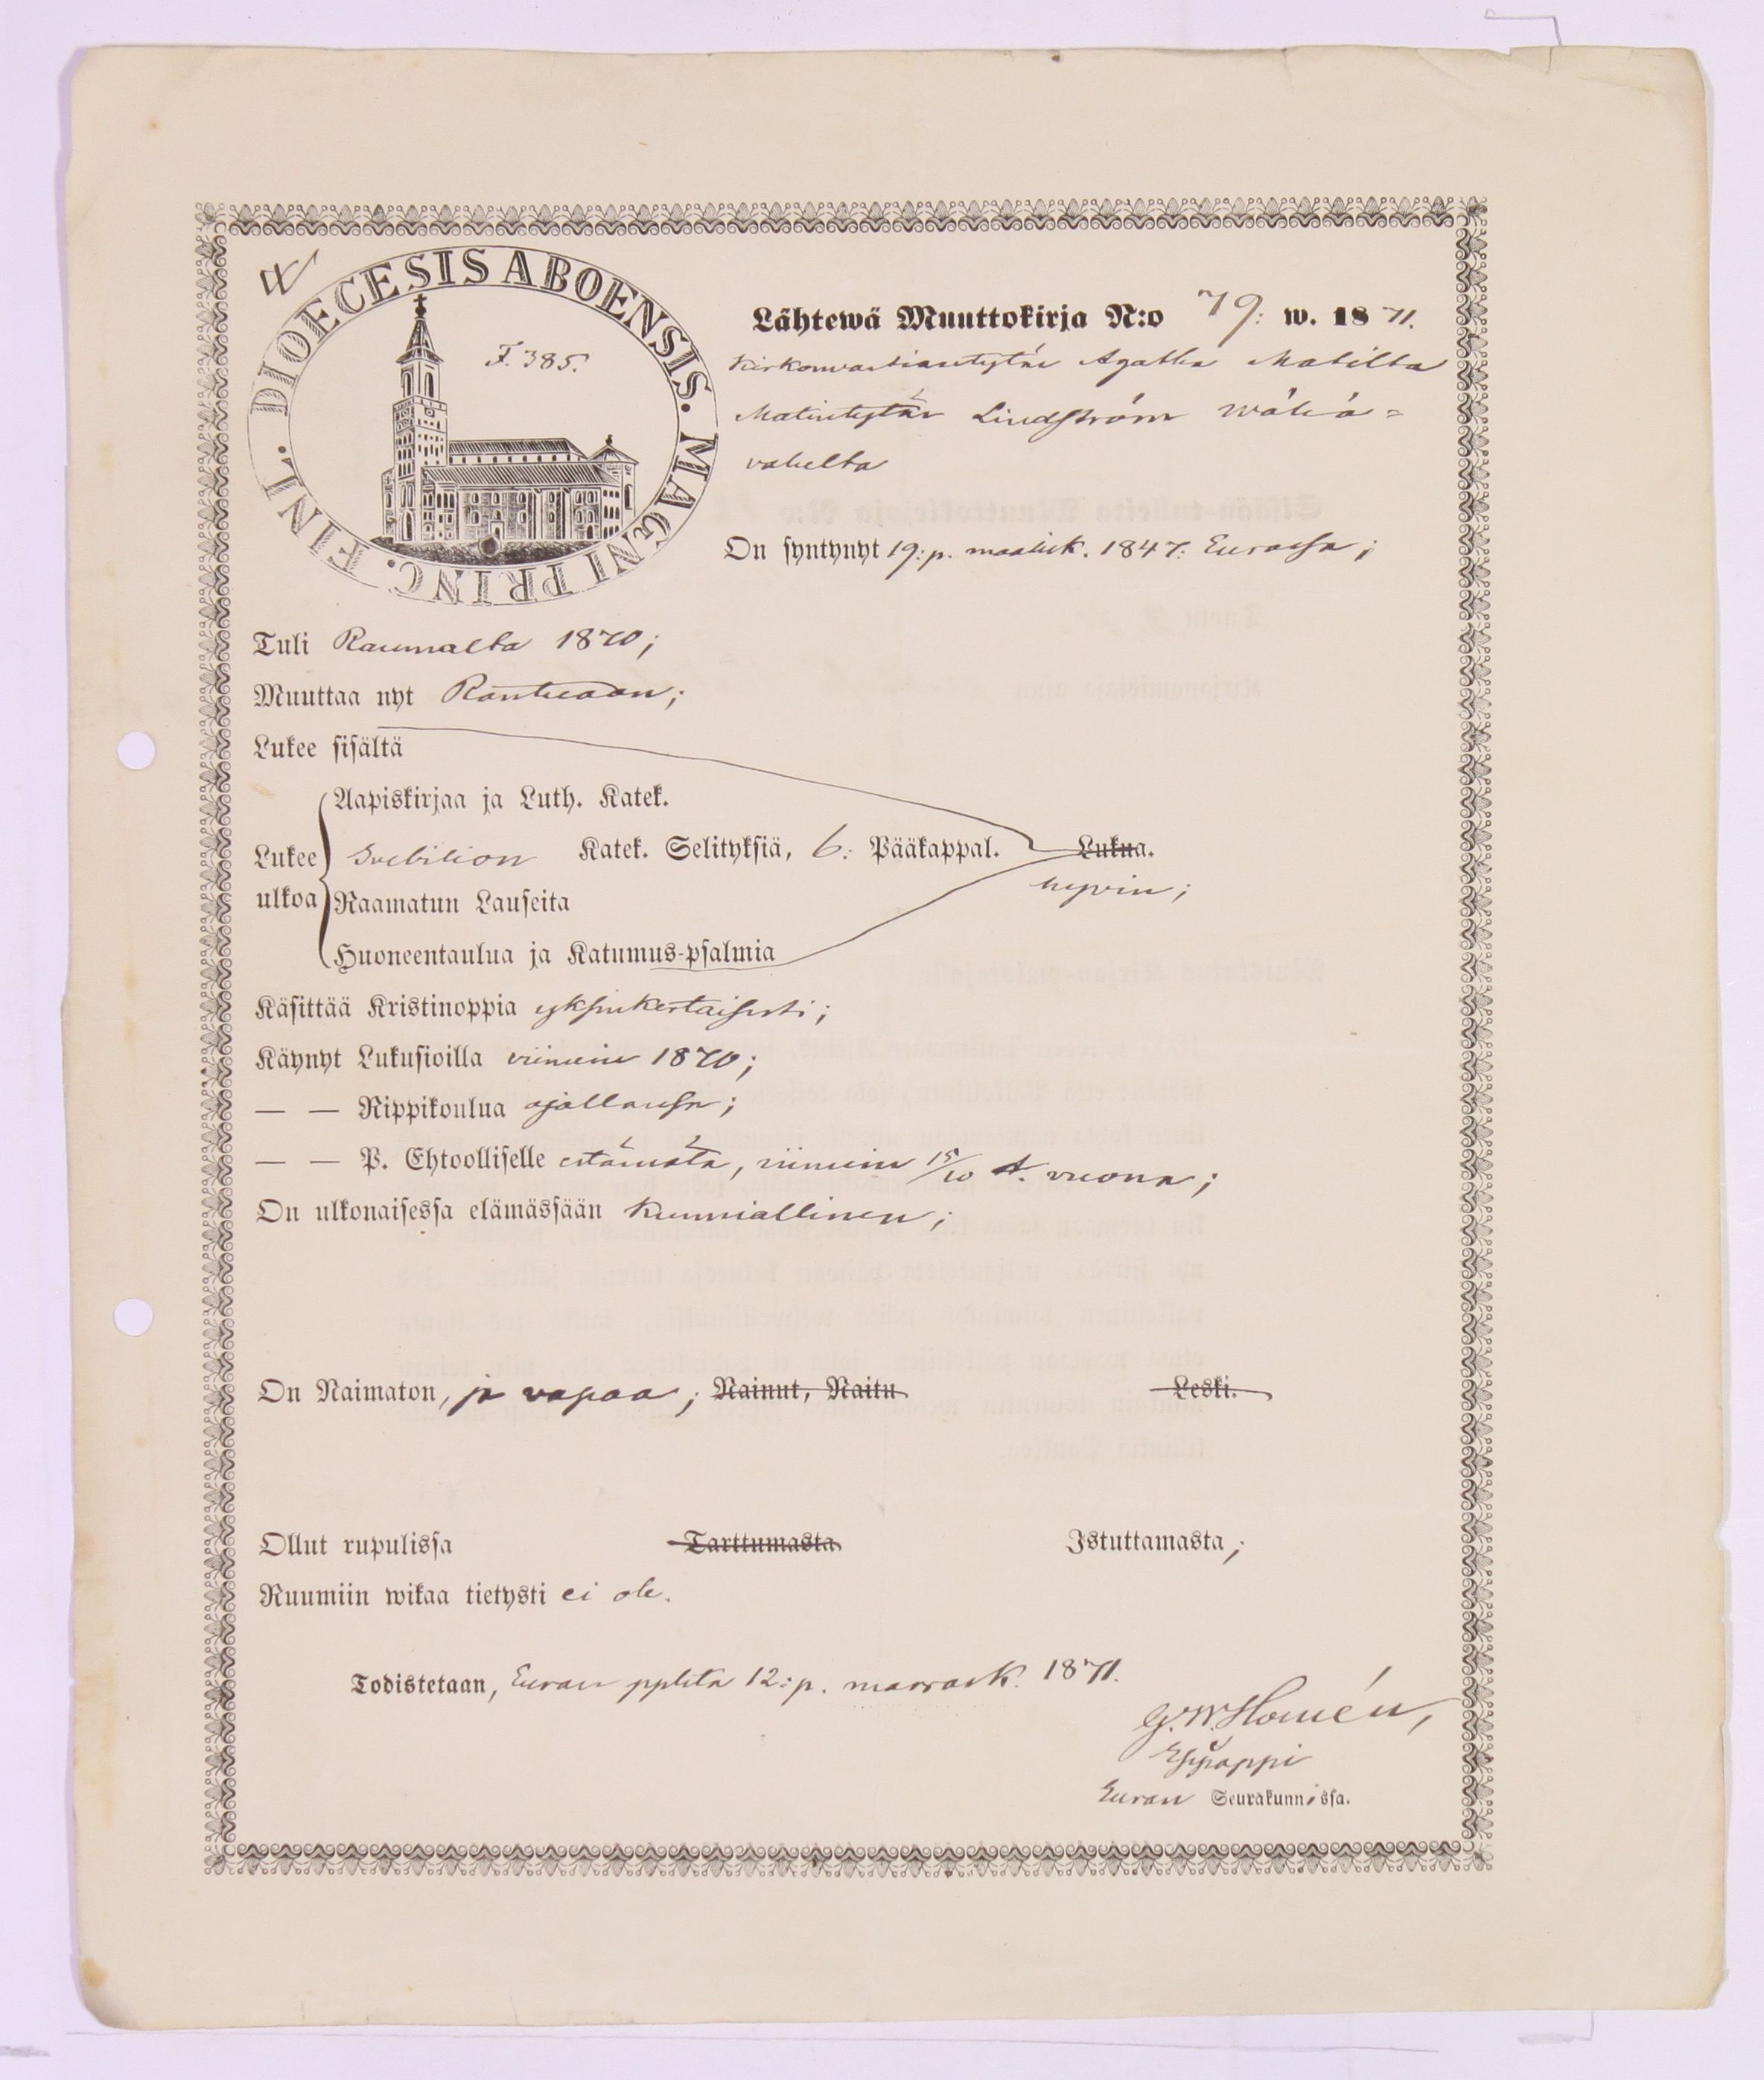 DIOECESIS ABOENSIS. MAGNI PRINC. FINL.
F. 385.
Lähtewä Muuttokirja N:o 79: w. 1871.
Kirkonvartiantytär Agatha Matilta
Matintytär Lindström Wähä=
vahelta
On syntynyt 19:p. maalisk. 1847: Eurassa;
Tuli Raumalta 1870;
Muuttaa nyt Rantecaan;
Lukee sisältä
Aapiskirjaa ja Luth. Katek.
Lukee Svebilion Katek. Selityksiä, 6: Pääkappal. Lukua.
hyvin;
ulkoa Raamatun Lauseita
Huoneentaulua ja Katumus-psalmia
Käsittää Kristinoppia yksinkertaisesti;
Käynyt Lukusioilla viimein 1870;
— — Rippikoulua ajallansa;
— — P. Ehtoolliselle estämätä, viimein 15/10 t. vuonna;
On ulkonaisessa elämässään kunniallinen;
On Naimaton, ja vapaa; Nainut, Naitu Leski.
Ollut rupulissa Tarttumasta Istuttamasta;
Ruumiin wikaa tietysti ei ole.
Todistetaan, Euran ppltta 12:p. marrask. 1871.
G. W. Homén,
Euran Seurakunnissa.